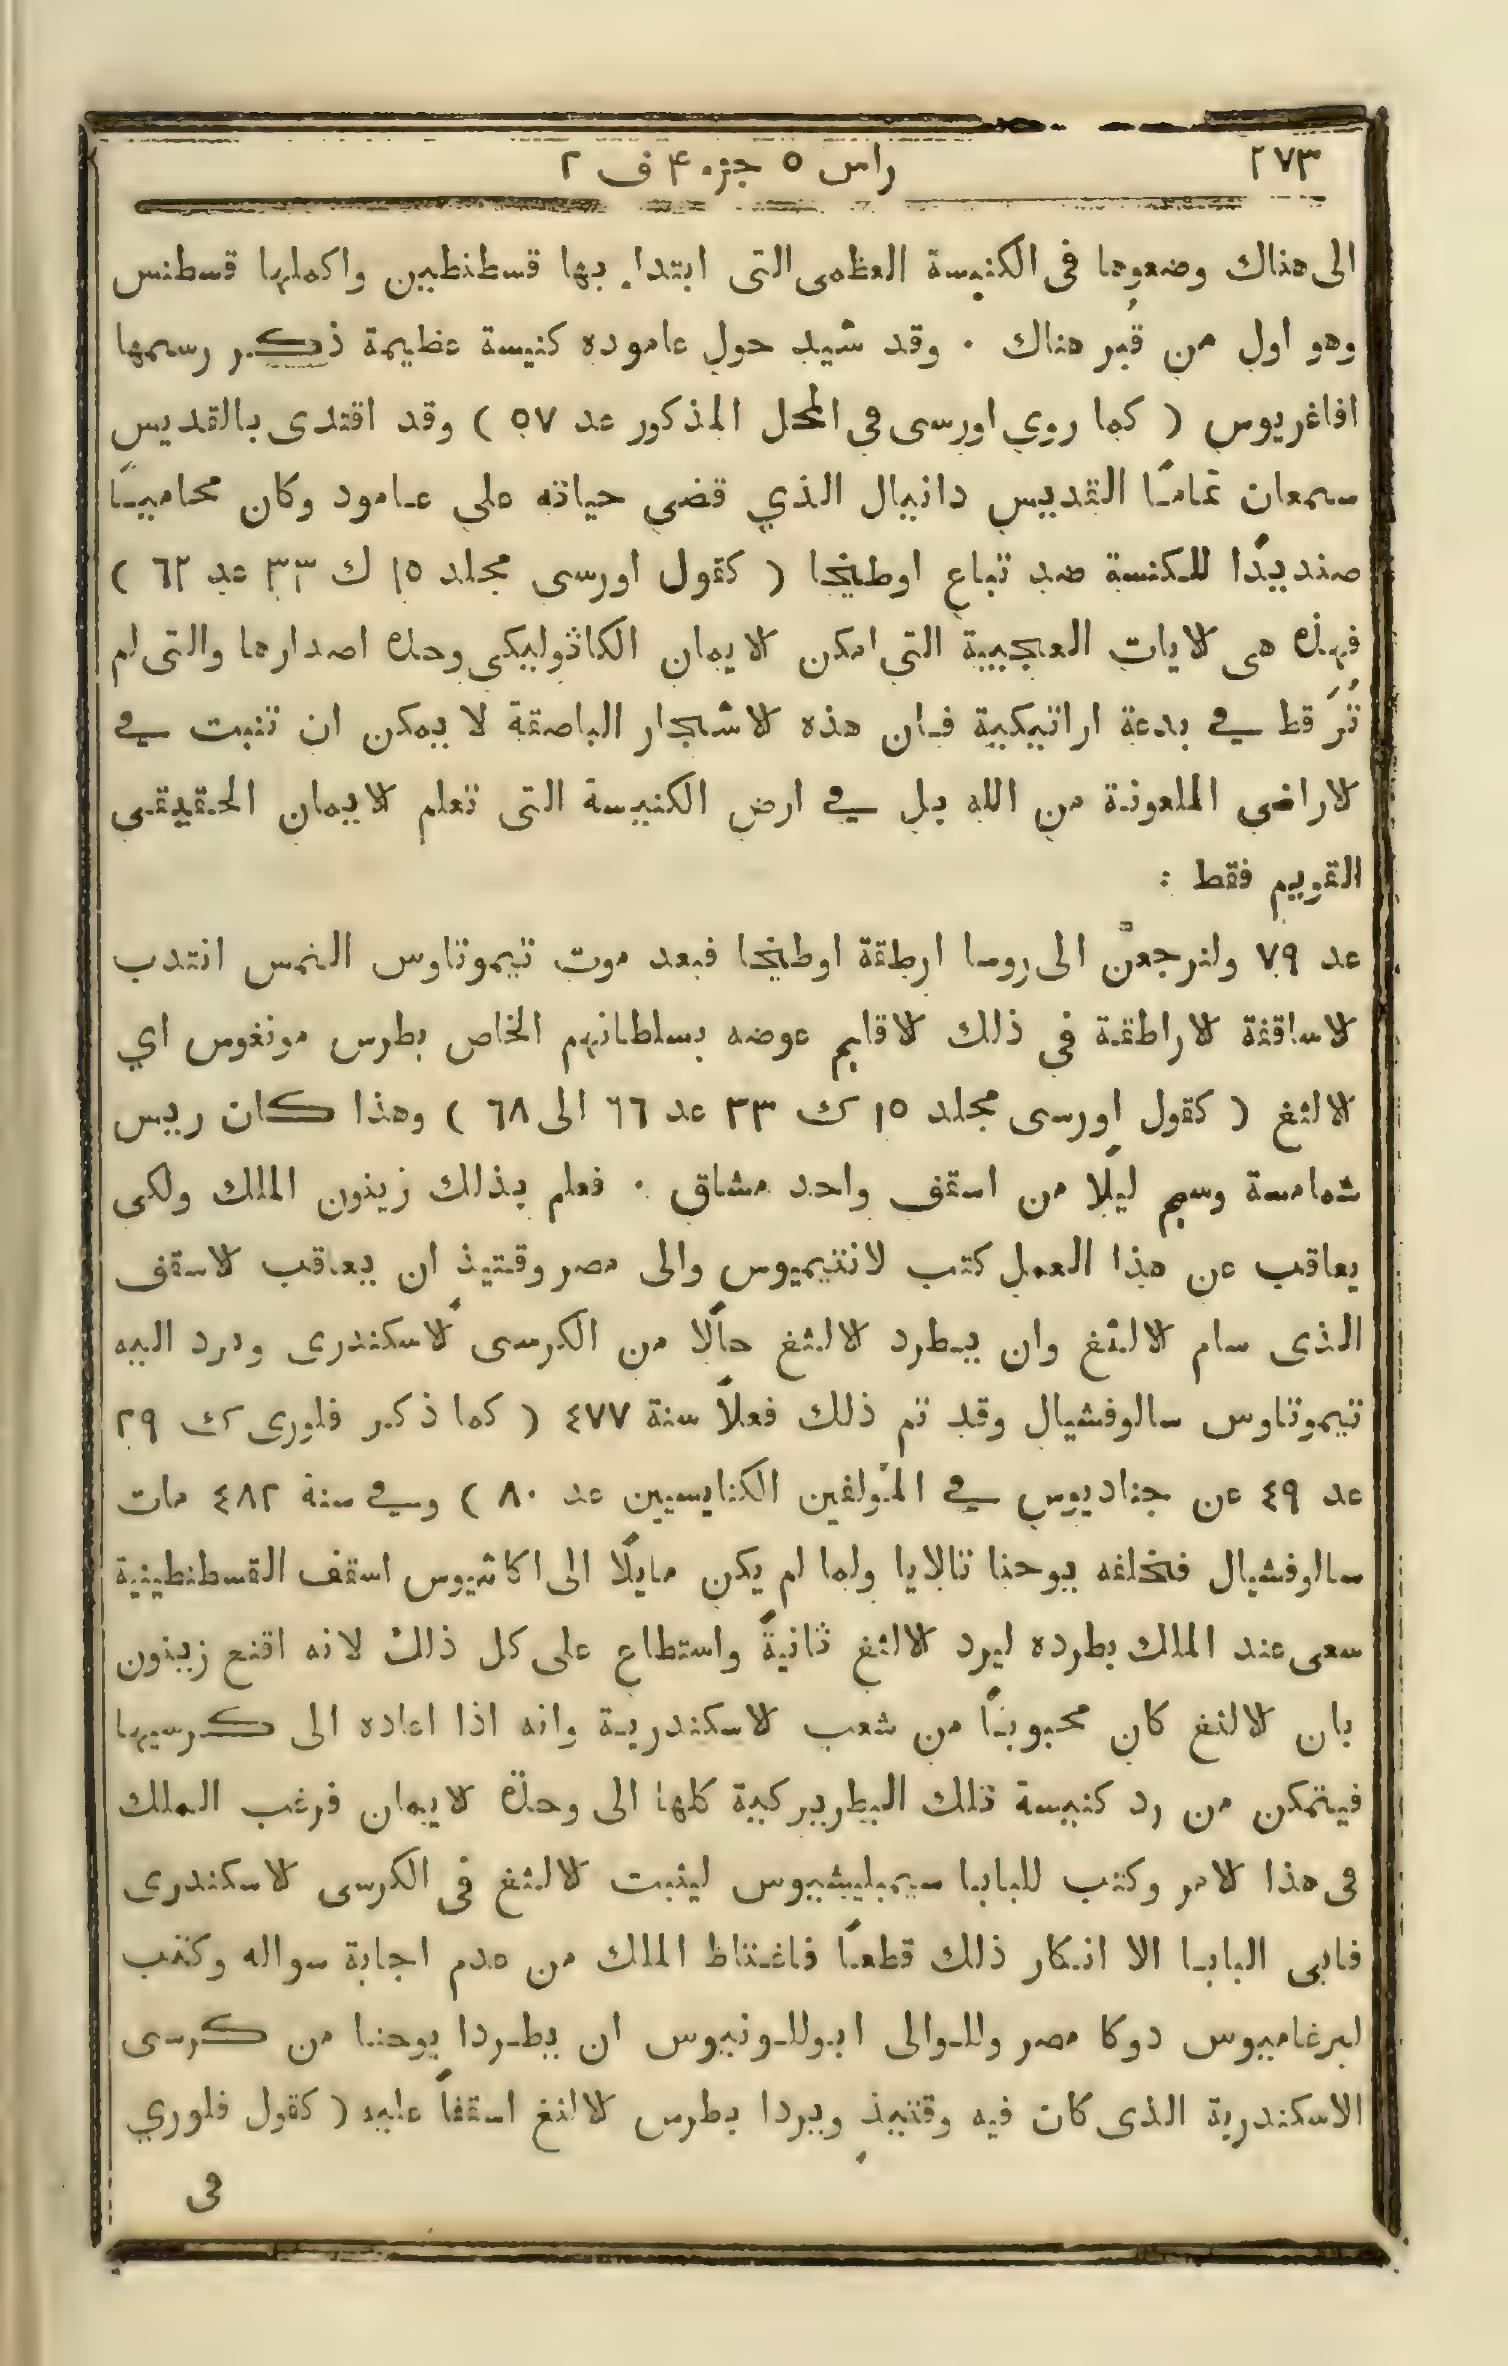 ٢٧٣ راس ٥ جزء ۴ ف ٢
الى هناك وضعوها فى الكنيسة العظمى التى ابتداء بها قسطنطيين واكملها قسطنس
وهو اول من قُبر هناك . وقد شيد حول عاموده كنيسة عظيمة ذكر رسمها
افاغريوس ( كما روي اورسى فى المحل المذكور عد ٥٧ ) وقد اقتدى بالقديس
سمعان تمامًا القديس دانيال الذي قضى حياته على عامود وكان محامييًا
صنديدًا للكنسة ضد تباع اوطيخا ( كقول اورسى مجلد ١٥ ك ٣٣ عد ٦٢ )
فهذه هى لايات العجيبة التى امكن لايمان الكاثوليكى وحده اصدارها والتى لم
تُرَ قط في بدعة اراتيكية فان هذه لاشجار الباصقة لا يمكن ان تنبت في
لاراضى الملعونة من الله بل في ارض الكنيسة التى تعلم لايمان الحقيقى
القويم فقط :
عد ٧٩ ولنرجعنّ الى روسا ارطقة اوطيخا فبعد موت تيموتاوس النمس انتدب
لاساقفة لاراطقة فى ذلك لاقليم عوضه بسلطانهم الخاص بطرس مونغوس اي
لالثغ ( كقول اورسى مجلد ١٥ ك ٣٣ عد ٦٦ الى ٦٨ ) وهذا كان رييس
شمامسة وسيم ليلًا من اسقف واحد مشاق . فعلم بذلك زينون الملك ولكى
يعاقب عن هذا العمل كتب لانتيميوس والى مصر وقتيذ ان يعاقب لاسقف
الذى سام لالثغ وان يطرد لالثغ حالًا من الكرسى لاسكندرى ويرد اليه
تيموتاوس سالوفشيال وقد تم ذلك فعلًا سنة ٤٧٧ ( كما ذكر فلورى ك ٢٩
عد ٤٩ عن جناديوس في المولفين الكنايسيين عد ٨٠ ) وفي سنة ٤٨٢ مات
سالوفشيال فخلفه يوحنا تالايا ولما لم يكن مايلًا الى اكاشيوس اسقف القسطنطينية
سعى عند الملك بطرده ليرد لالثغ ثانيةً واستطاع على كل ذلك لانه اقنع زينون
بان لالثغ كان محبوبًا من شعب لاسكندرية وانه اذا اعاده الى كرسيها
فيتمكن من رد كنيسة تلك البطريركية كلها الى وحدة لايمان فرغب الملك
فى هذا لامر وكتب للبابا سيمبليشيوس ليثبت لالثغ فى الكرسى لاسكندرى
فابى البابا الا انكار ذلك قطعًا فاغتاظ الملك من عدم اجابة سواله وكتب
لبرغاميوس دوكا مصر وللوالى ابوللونيوس ان يطردا يوحنا من كرسى
الاسكندرية الذى كان فيه وقتيذ ويردا بطرس لالثغ اسقفًا عليه ( كقول فلوري
فى